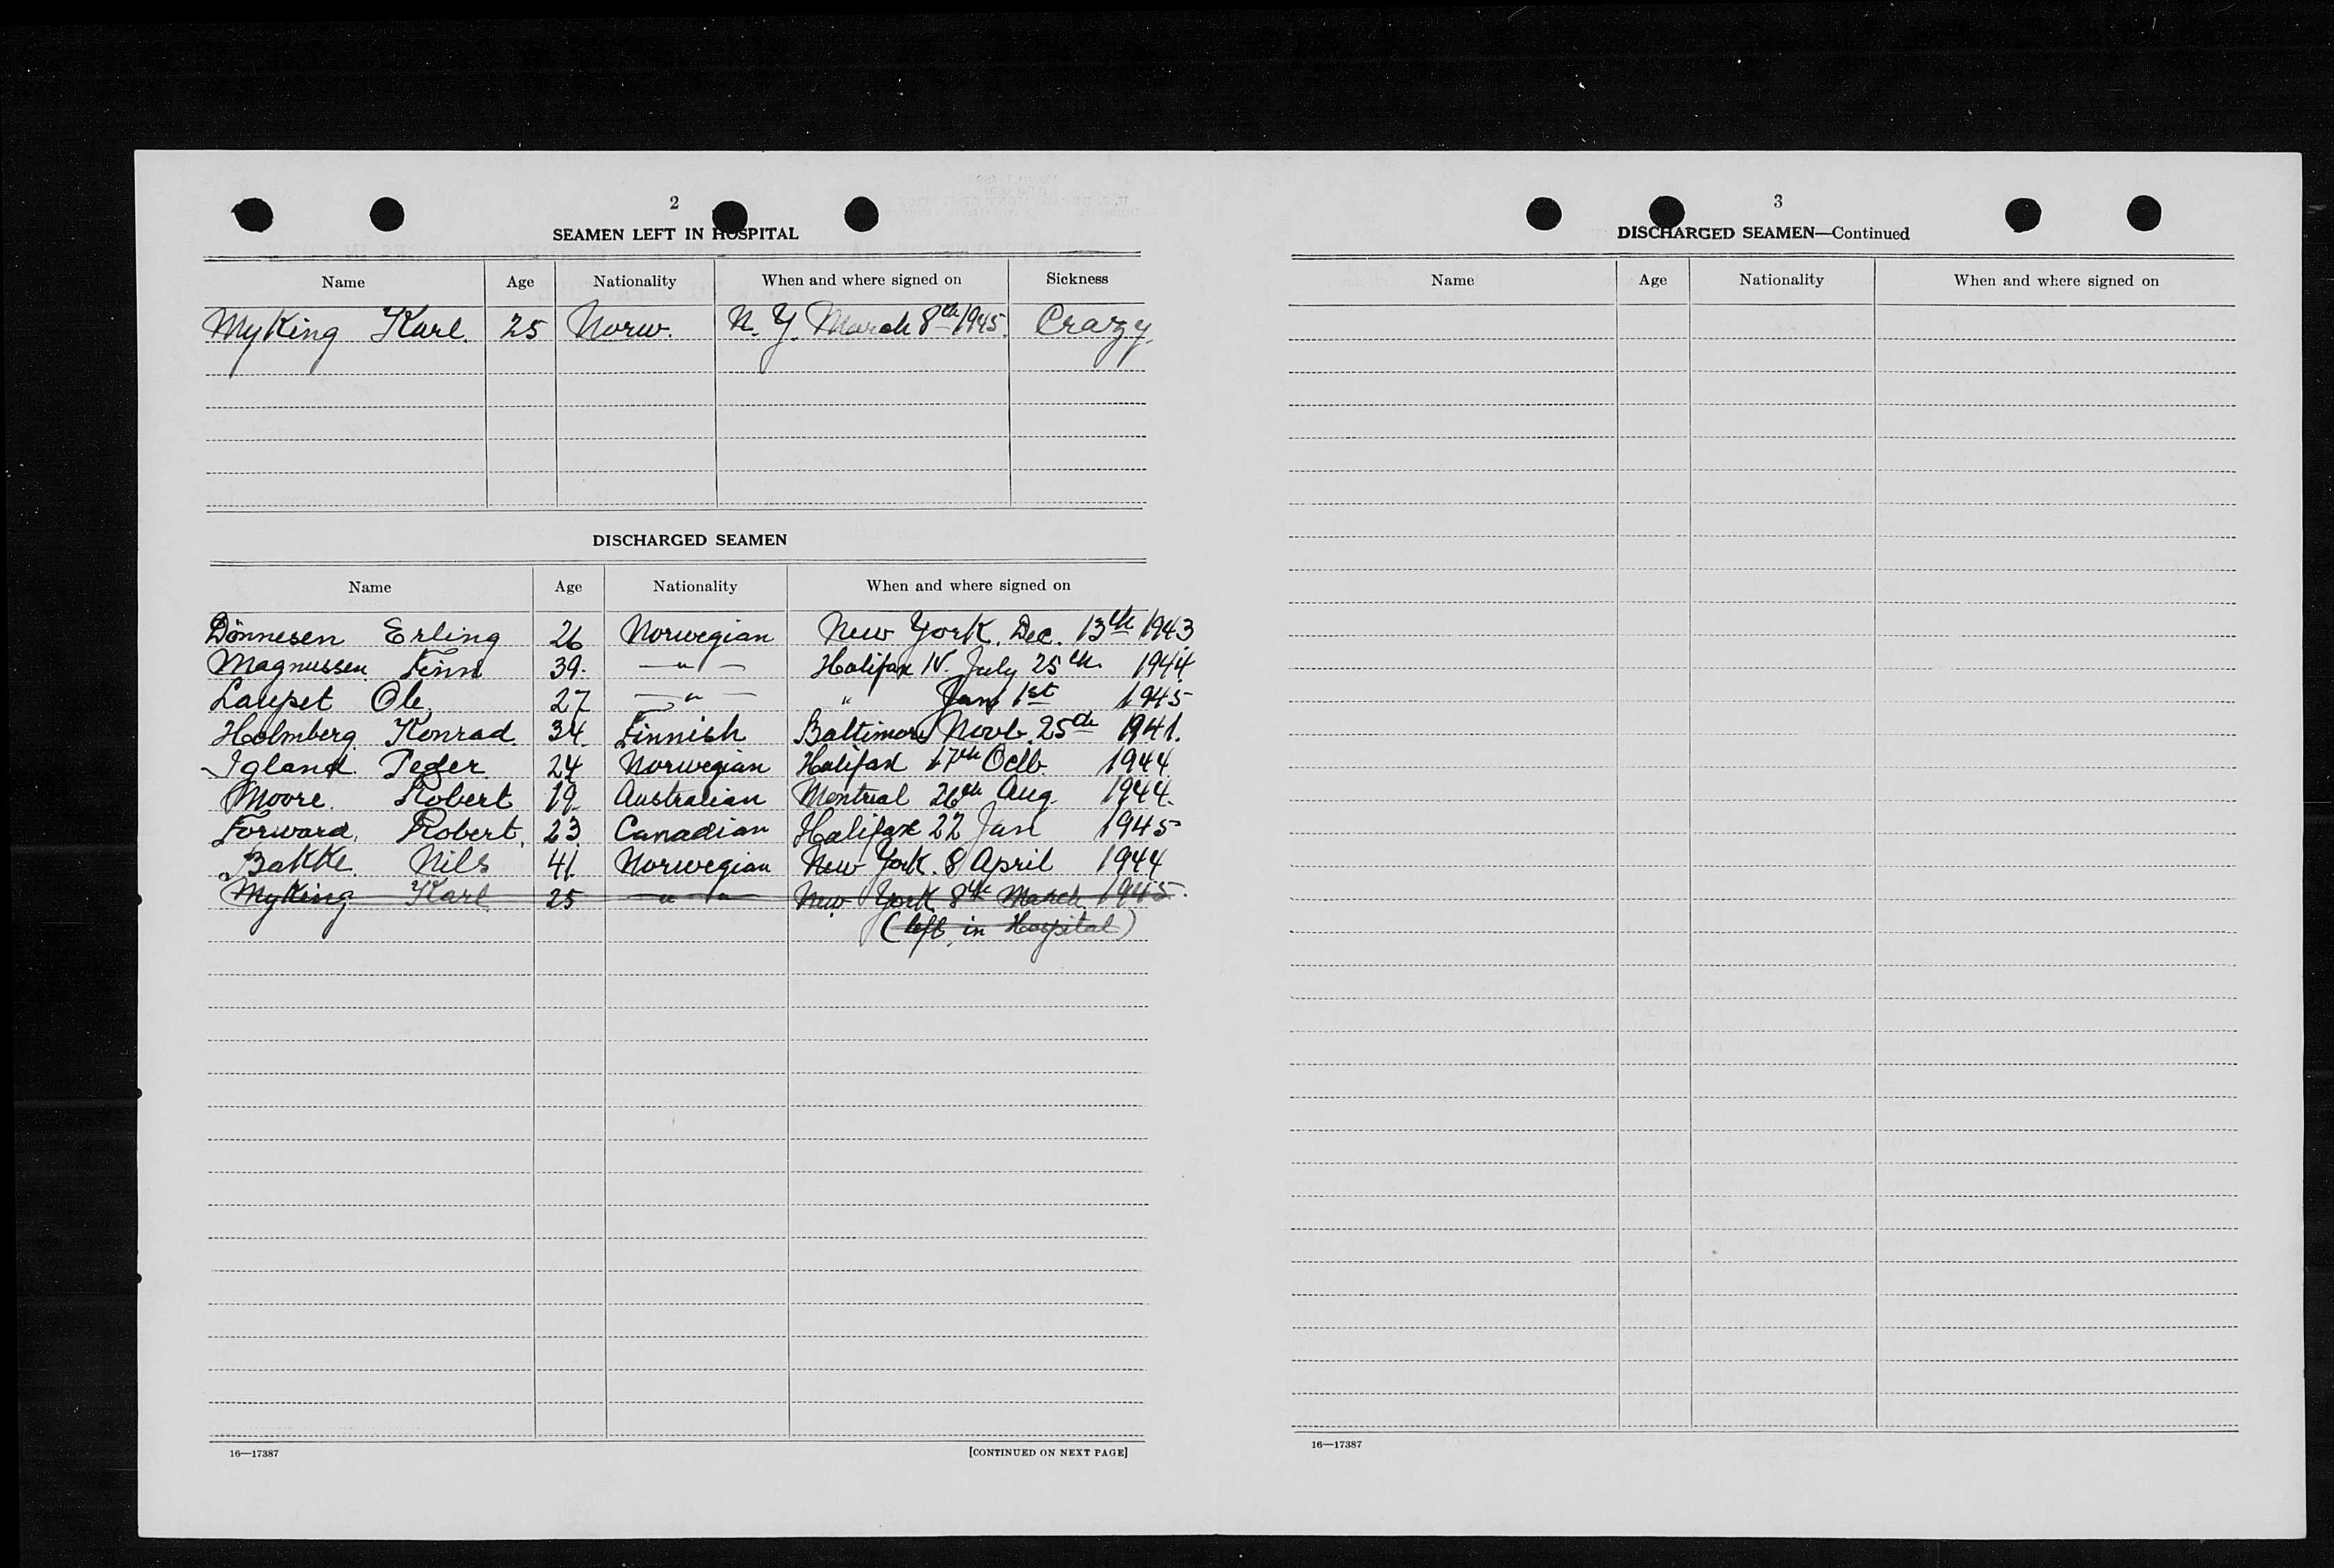 2
SEAMEN LEFT IN HOSPITAL
Name Age Nationality When and where signed on Sickness
Myking Karl. 25 Norw. N.Y. March 8th 1945. Crazy.
DISCHARGED SEAMEN
Name Age Nationality When and where signed on
Dönnesen Erling 26 Norwegian New York. Dec. 13th 1943
Magnussen Finn 39. —"— Halifax N. July 25th. 1944
Laupset Ole. 27 —"— " Jan 1st 1945
Holmberg Konrad. 34. Finnish Baltimore Novb. 25th 1941.
Igland. Peder. 24 Norwegian Halifax 17th Octb. 1944
Moore. Robert 19. Australian Montreal 26th Aug. 1944.
Forward, Robert. 23 Canadian Halifax 22 Jan 1945
Bakke. Nils 41. Norwegian New York. 8 April 1944
Myking Karl 25 " " New York 8th March 1945.
(left in Hospital)
16—17387 [CONTINUED ON NEXT PAGE]
3
DISCHARGED SEAMEN—Continued
Name Age Nationality When and where signed on
16—17387